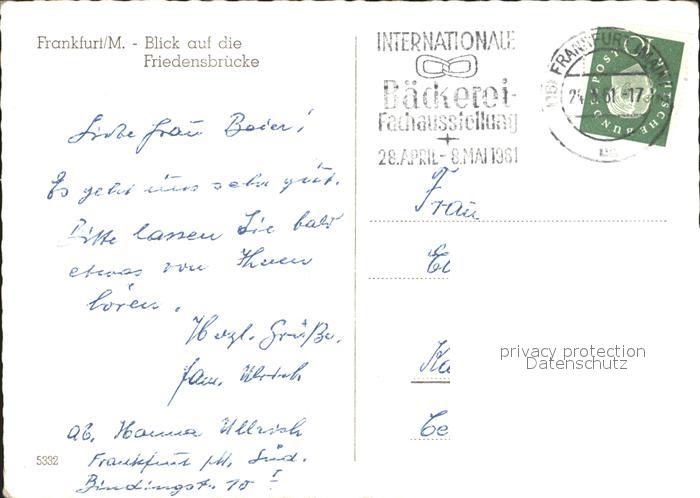 Frankfurt/M. - Blick auf die
Friedensbrücke
INTERNATIONALE
Bäckerei-
Fachausstellung
28.APRIL - 8.MAI 1961
FRANKFURT (MAIN)
61 -17
DEUTSCHE BUNDESPOST
Liebe Frau Baier!
Es geht uns sehr gut.
Bitte lassen Sie bald
etwas von Ihnen
hören.
Herzl. Grüße.
Fam. Ullrich
Ab. Hanna Ullrich
Frankfurt /M. Süd.
Bindingstr. 10 I
5332
Frau
El
Ka
Ge
privacy protection
Datenschutz